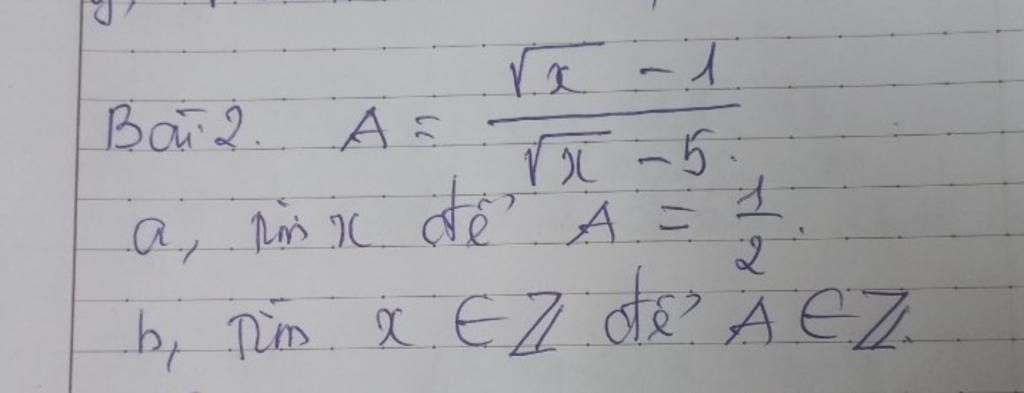 Bài 2. A = (√x - 1)/(√x - 5).
a, Tìm x để A = 1/2.
b, Tìm x ∈ ℤ để A ∈ ℤ.